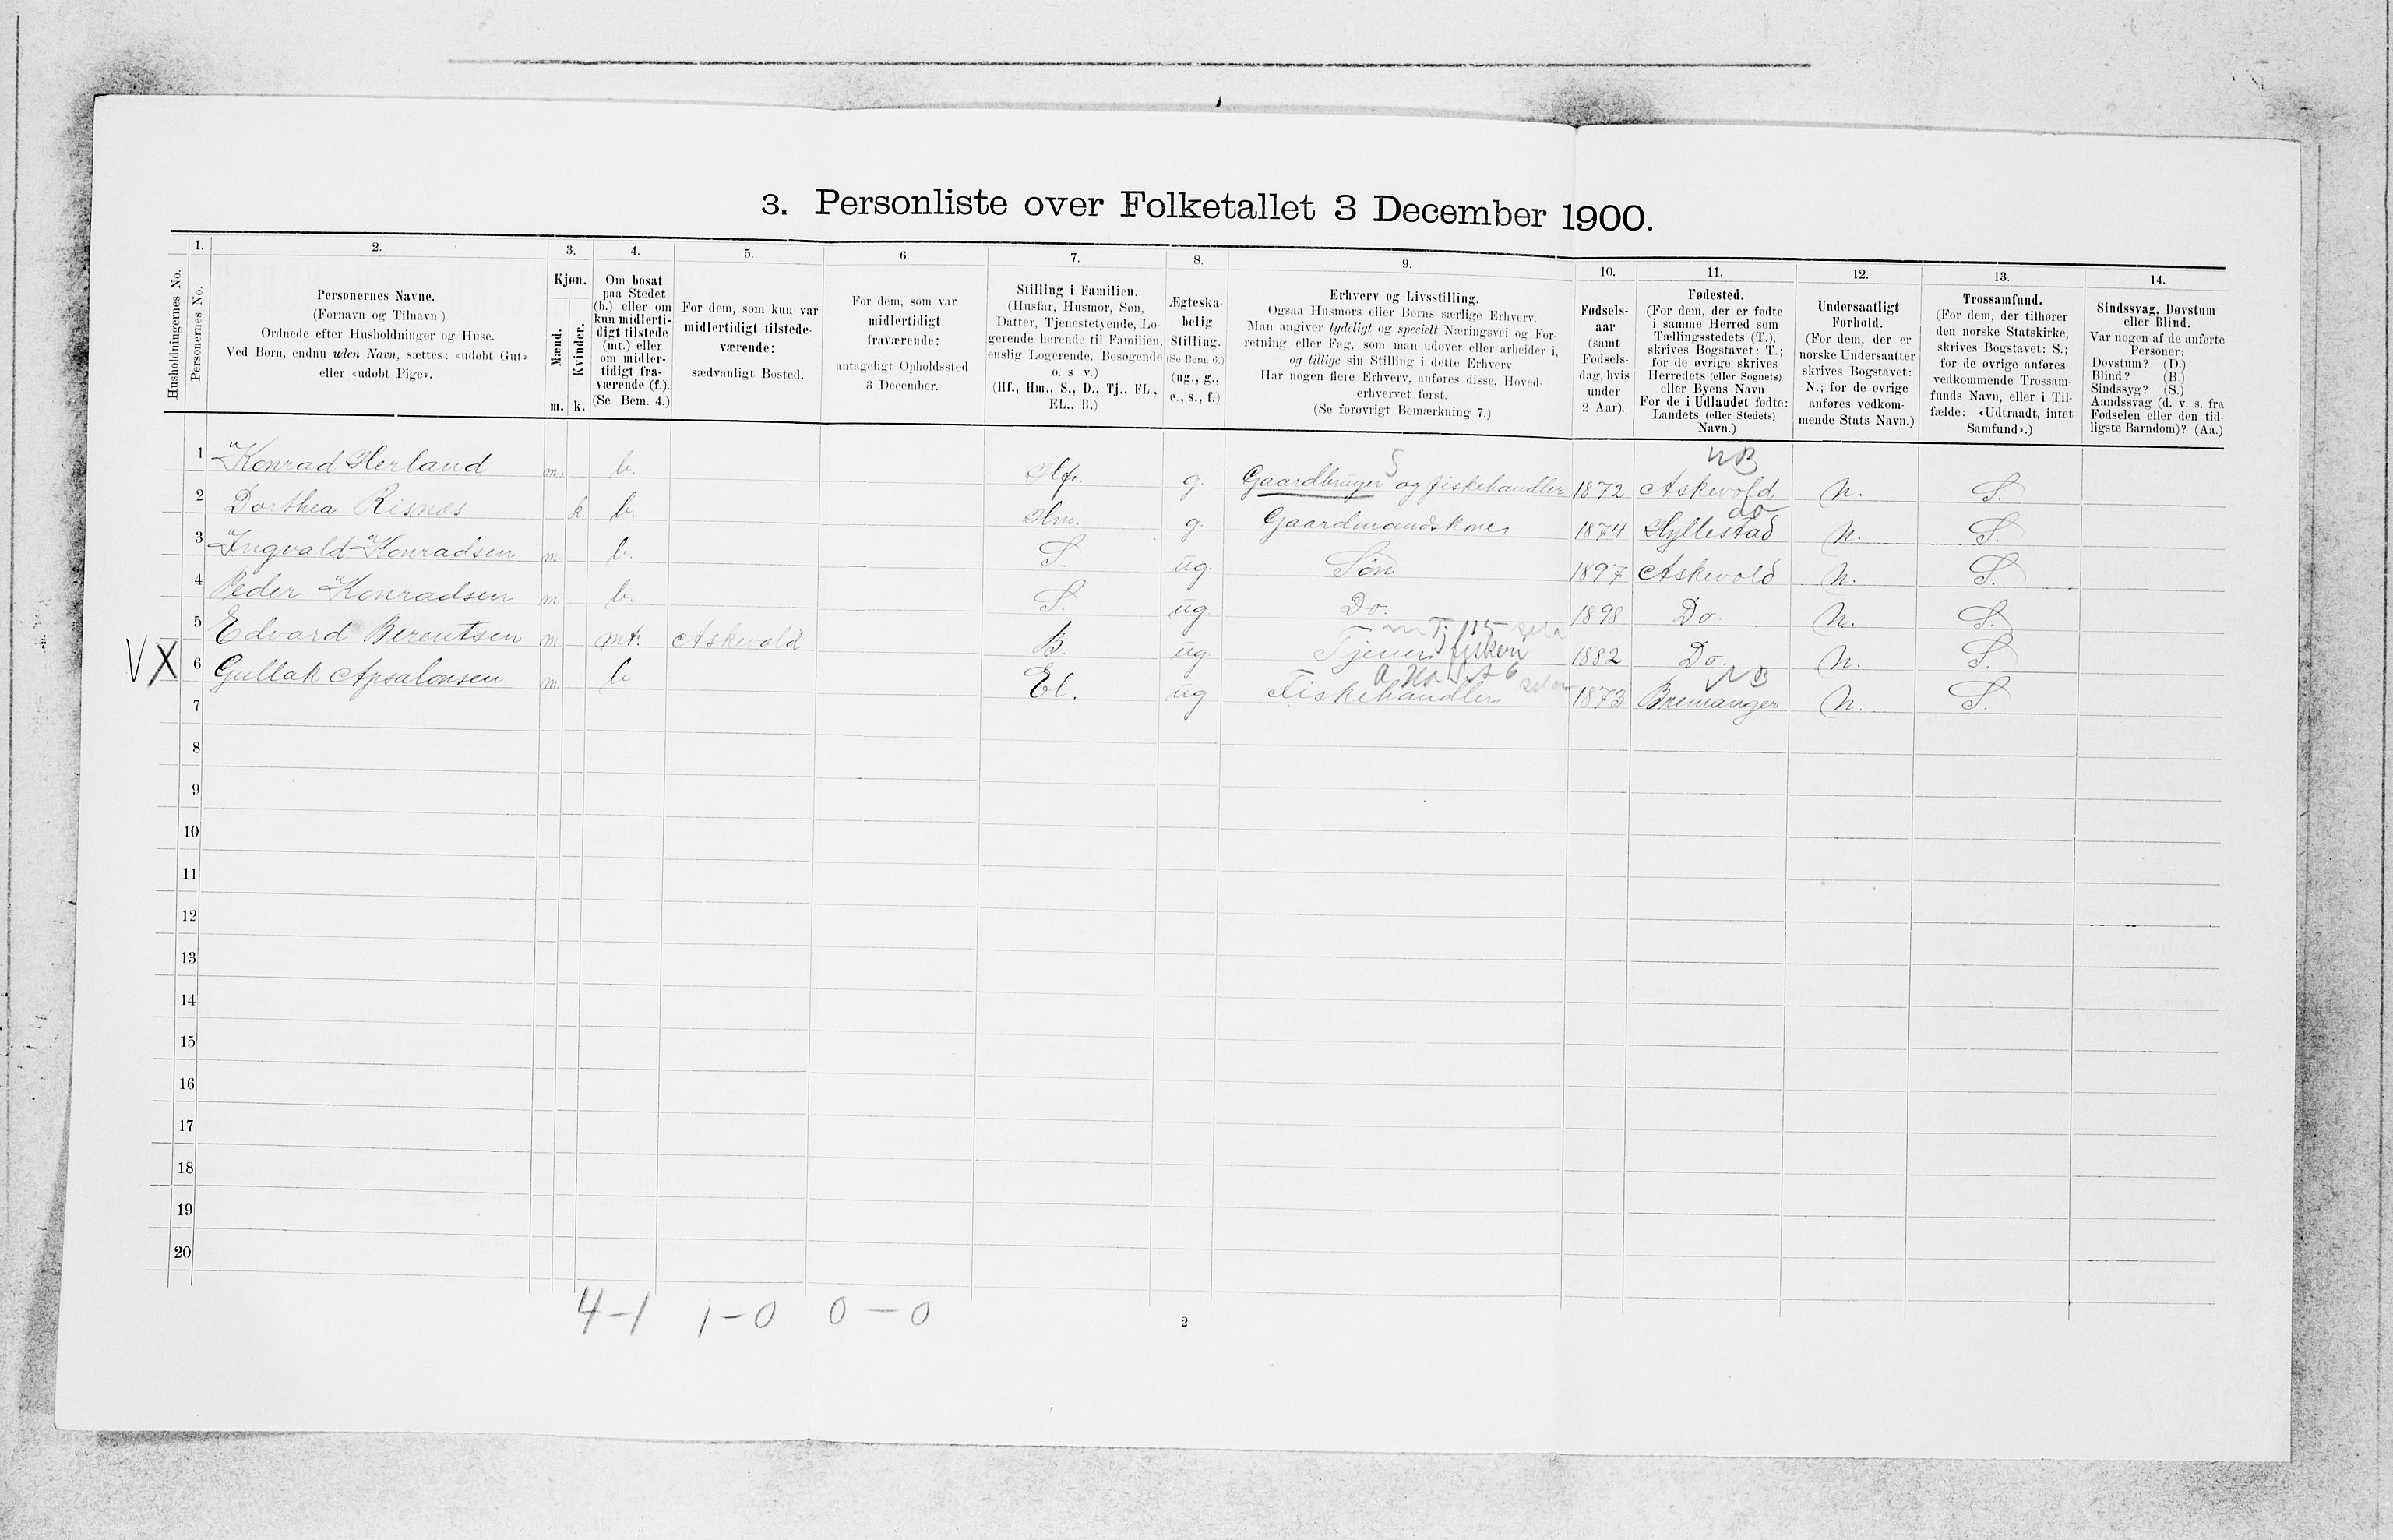 3. Personliste over Folketallet 3 December 1900.
1. 2. 3. 4. 5. 6. 7. 8. 9. 10. 11. 12. 13. 14.
Husholdningernes No.
Personernes No.
Personernes Navne.
(Fornavn og Tilnavn)
Ordnede efter Husholdninger og Huse.
Ved Børn, endnu uden Navn, sættes: «udøbt Gut»
eller «udøbt Pige».
Kjøn.
Mænd.
Kvinder.
m. k.
Om bosat
paa Stedet
(b.) eller om
kun midlerti-
digt tilstede
(mt.) eller
om midler-
tidigt fra-
værende (f.).
(Se Bem. 4.)
For dem, som kun var
midlertidigt tilstede-
værende:
sædvanligt Bosted.
For dem, som var
midlertidigt
fraværende:
antageligt Opholdssted
3 December.
Stilling i Familien.
(Husfar, Husmor, Søn,
Datter, Tjenestetyende, Lo-
gerende hørende til Familien,
enslig Logerende, Besøgende
o. s v.)
(Hf., Hm., S., D., Tj., FL.,
EL., B.)
Ægteska-
belig
Stilling.
(Se Bem. 6.)
(ug., g.,
e., s., f.)
Erhverv og Livsstilling.
Ogsaa Husmors eller Børns særlige Erhverv.
Man angiver tydeligt og specielt Næringsvei og For-
retning eller Fag, som man udøver eller arbeider i,
og tillige sin Stilling i dette Erhverv
Har nogen flere Erhverv, anføres disse, Hoved-
erhvervet først.
(Se forøvrigt Bemærkning 7.)
Fødsels-
aar
(samt
Fødsels-
dag, hvis
under
2 Aar).
Fødested.
(For dem, der er fødte
i samme Herred som
Tællingsstedets (T.),
skrives Bogstavet: T.;
for de øvrige skrives
Herredets (eller Sognets)
eller Byens Navn
For de i Udlandet fødte:
Landets (eller Stedets)
Navn.)
Undersaatligt
Forhold.
(For dem, der er
norske Undersaatter
skrives Bogstavet:
N.; for de øvrige
anføres vedkom-
mende Stats Navn.)
Trossamfund.
(For dem, der tilhører
den norske Statskirke,
skrives Bogstavet: S.;
for de øvrige anføres
vedkommende Trossam-
funds Navn, eller i Til-
fælde: «Udtraadt, intet
Samfund».)
Sindssvag, Døvstum
eller Blind.
Var nogen af de anførte
Personer:
Døvstum? (D.)
Blind? (B.)
Sindssyg? (S.)
Aandssvag (d. v. s. fra
Fødselen eller den tid-
ligste Barndom)? (Aa.)
5 NB
1 Konrad Herland m. b. Hf. g. Gaardbruger og fiskehandler 1872 Askevold N. S.
do
2 Dorthea Risnæs k. b. Hm. g. Gaardmandskone 1874 Hyllestad N. S.
3 Ingvald Konradsen m. b. — S. ug. Søn 1897 Askevold N. S.
4 Peder Konradsen m. b. S. ug. Do. 1898 Do N. S.
5 Edvard Berentsen m. mt. Askevold B. ug. Tjener fiskeri 1882 Do. N. S.
NB
V X 6 Gullak Apsalonsen m. b El. ug Fiskehandler 1873 Bremanger N. S.
7
8
9
10
11
12
13
14
15
16
17
18
19
20
4-1 1-0 0-0
2